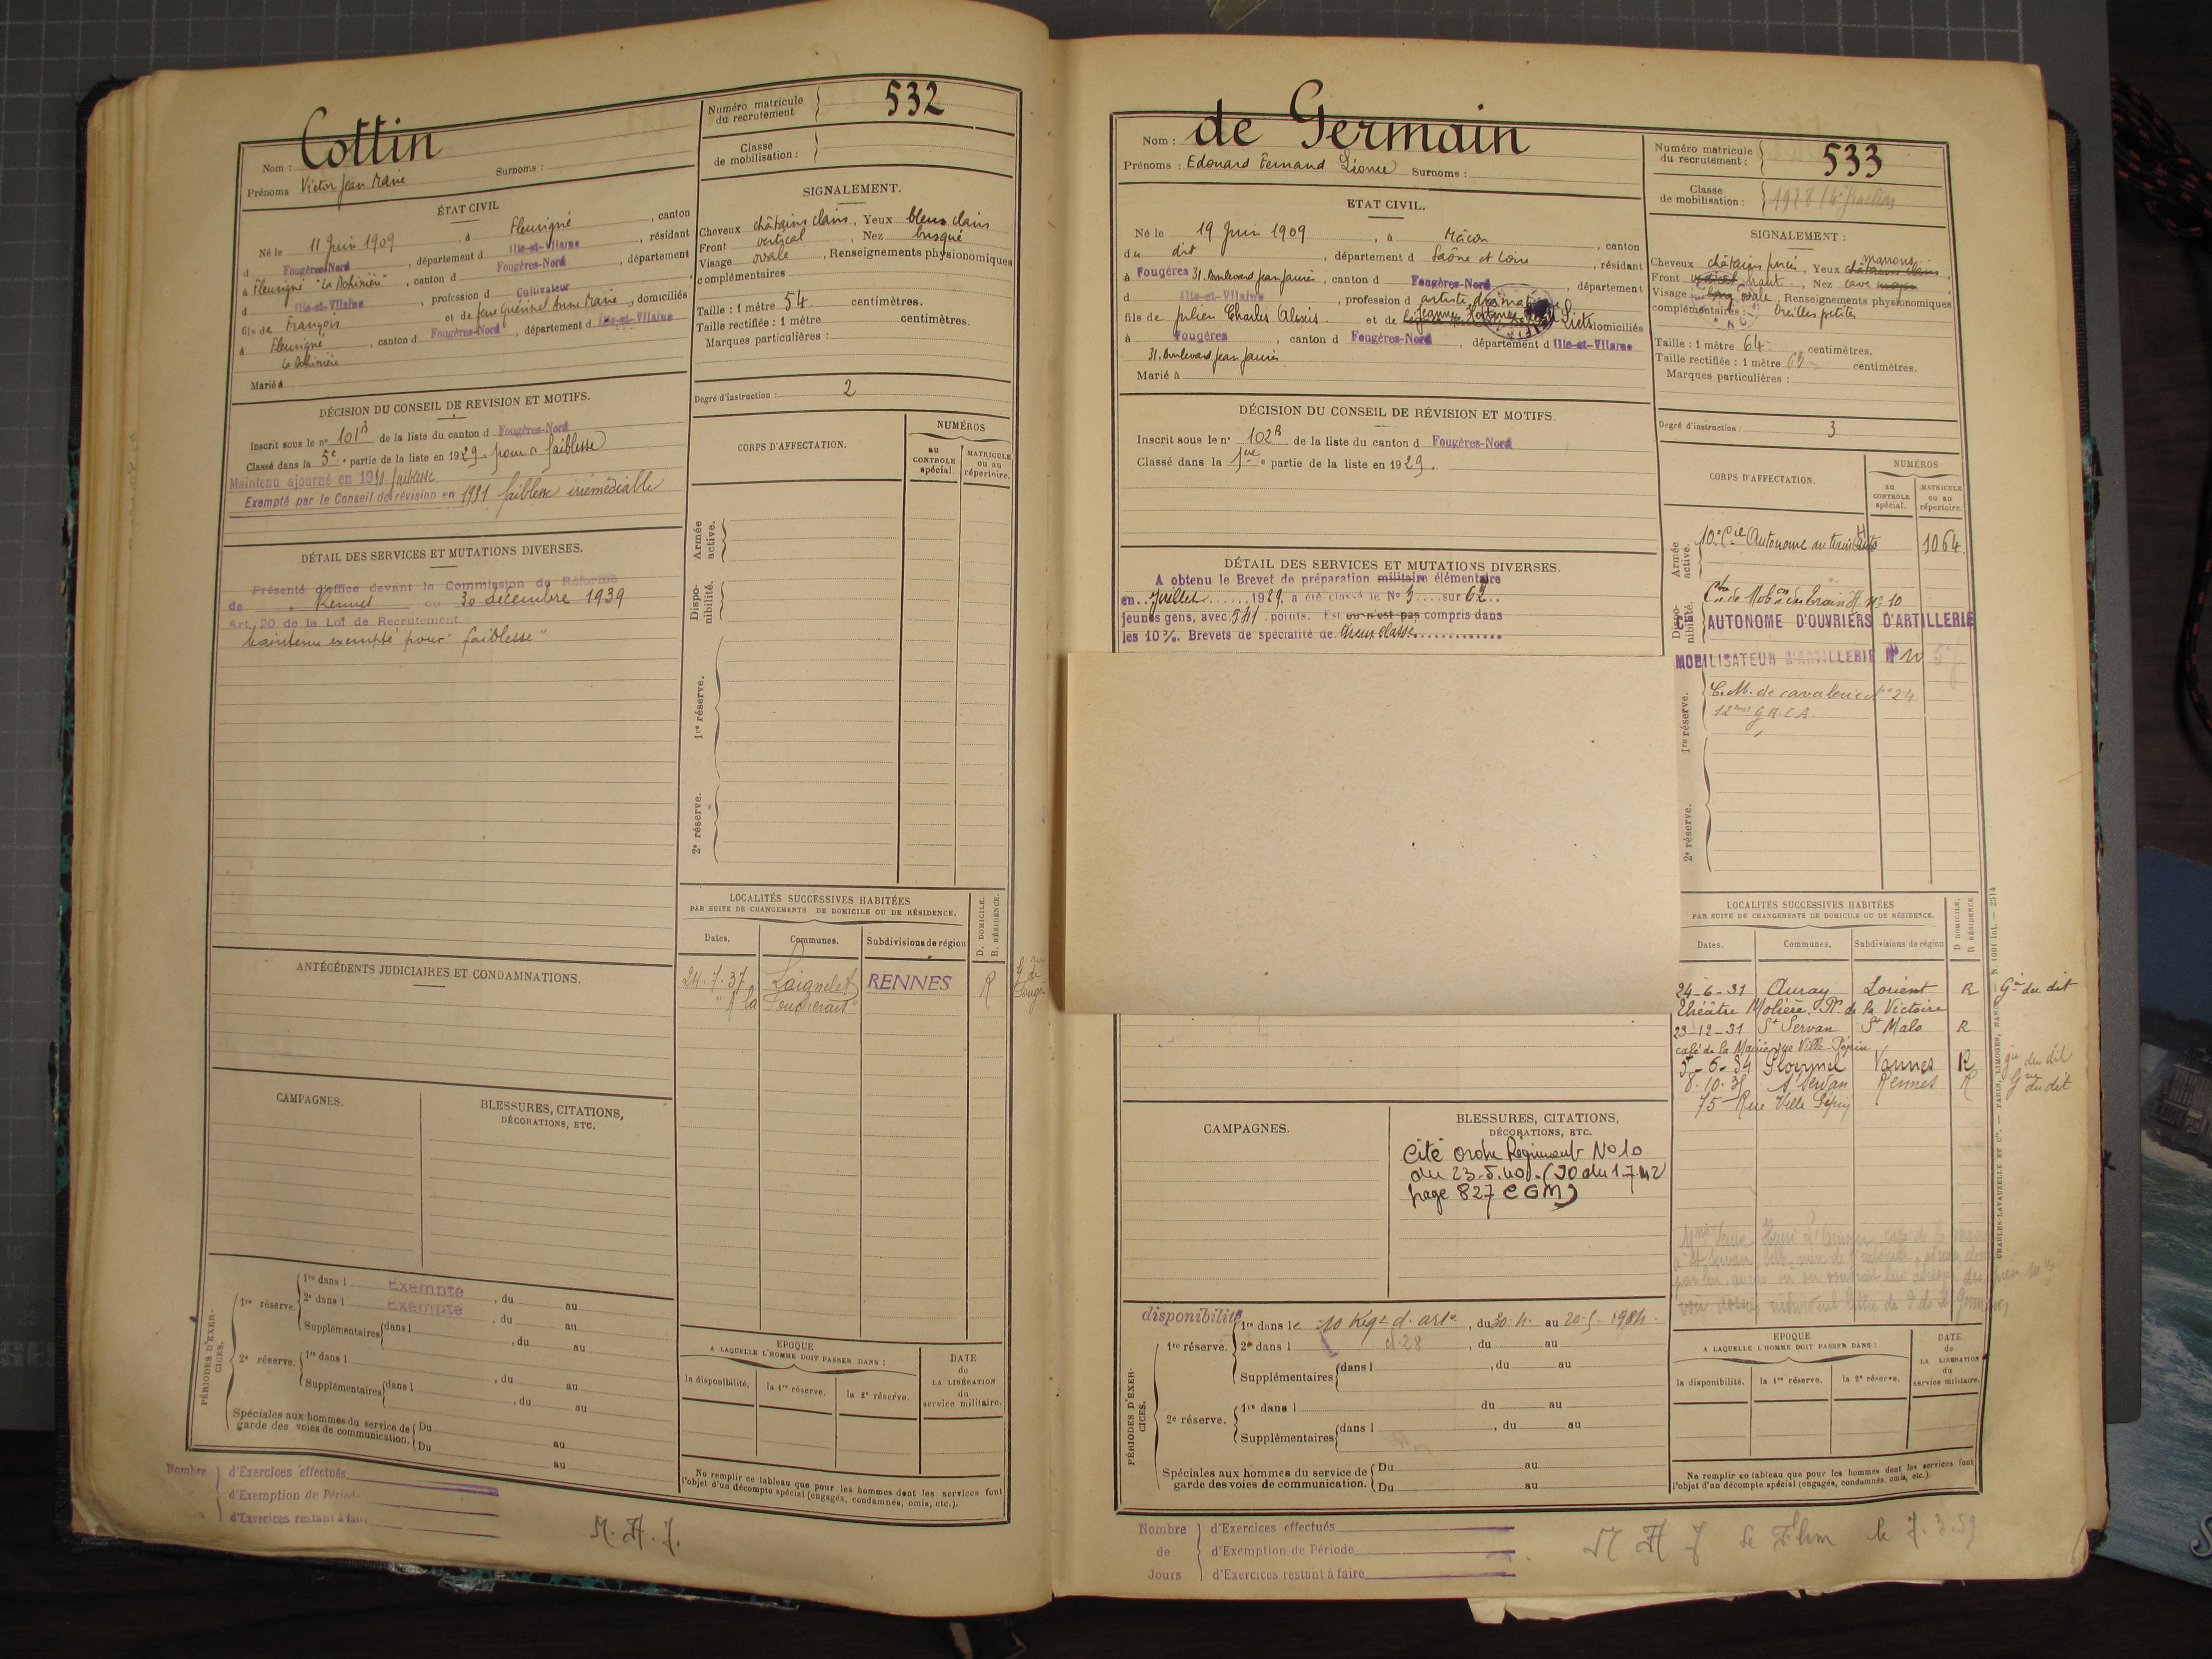 Nom : Cottin
Prénoms Victor Jean Marie Surnoms :
Numéro matricule du recrutement 532
Classe de mobilisation :
ÉTAT CIVIL
Né le 11 Juin 1909, à Fleurigné, canton
d Fougères-Nord, département d Ille-et-Vilaine, résidant
à Fleurigné "La Bohinière", canton d Fougères-Nord, département
d Ille-et-Vilaine, profession d Cultivateur
fils de François et de feue Guérinel Anne Marie, domiciliés
à Fleurigné, canton d Fougères-Nord, département d Ille-et-Vilaine
La Bohinière
Marié à
SIGNALEMENT.
Cheveux châtains clairs, Yeux bleus clairs
Front vertical, Nez busqué
Visage ovale, Renseignements physionomiques
complémentaires
Taille : 1 mètre 54 centimètres.
Taille rectifiée : 1 mètre centimètres.
Marques particulières :
Degré d'instruction : 2
DÉCISION DU CONSEIL DE REVISION ET MOTIFS.
Inscrit sous le n° 101 B de la liste du canton d Fougères-Nord
Classé dans la 5e partie de la liste en 1929. pour "faiblesse"
Maintenu ajourné en faiblesse
Exempté par le Conseil de révision en 1931 faiblesse irrémédiable
DÉTAIL DES SERVICES ET MUTATIONS DIVERSES.
Présenté d'office devant la Commission de Réforme
de Rennes du 30 décembre 1939
Art. 20 de la Loi de Recrutement
Maintenu exempté pour "faiblesse"
CORPS D'AFFECTATION.
NUMÉROS
au CONTROLE spécial.
MATRICULE ou au répertoire.
Armée active.
Disponibilité.
1re réserve.
2e réserve.
LOCALITÉS SUCCESSIVES HABITÉES
PAR SUITE DE CHANGEMENTS DE DOMICILE OU DE RÉSIDENCE.
D. DOMICILE.
R. RÉSIDENCE.
Dates. Communes. Subdivisions de région
24.7.37 Laignelet RENNES R
"A la Toucherais"
ANTÉCÉDENTS JUDICIAIRES ET CONDAMNATIONS.
CAMPAGNES.
BLESSURES, CITATIONS,
DÉCORATIONS, ETC.
PÉRIODES D'EXERCICES.
1re réserve. 1re dans l Exempte, du au
2e dans l Exempte, du au
Supplémentaires dans l, du au
2e réserve. 1re dans l
Supplémentaires dans l, du au
, du au
Spéciales aux hommes du service de garde des voies de communication. Du au
Du au
EPOQUE
A LAQUELLE L'HOMME DOIT PASSER DANS :
la disponibilité. la 1re réserve. la 2e réserve.
DATE de LA LIBÉRATION du service militaire.
Ne remplir ce tableau que pour les hommes dont les services font
l'objet d'un décompte spécial (engagés, condamnés, omis, etc.).
Nombre
d'Exercices effectués
d'Exemption de Période
d'Exercices restant à faire
M. A. J.
Nom : de Germain
Prénoms : Edouard Fernand Léonce Surnoms :
Numéro matricule du recrutement : 533
Classe de mobilisation : 1928
ETAT CIVIL.
Né le 19 Juin 1909, à Mâcon, canton
du dit, département d Saône et Loire, résidant
à Fougères 31. Boulevard Jean Jaurès, canton d Fougères-Nord, département
d Ille-et-Vilaine, profession d artiste dramatique
fils de Julien Charles Alexis et de Jeanne domiciliés
à Fougères, canton d Fougères-Nord, département d Ille-et-Vilaine
31. Boulevard Jean Jaurès
Marié à
SIGNALEMENT :
marrons
Cheveux châtains foncés, Yeux châtains clairs
Front haut, Nez cave
Visage ovale, Renseignements physionomiques
complémentaires : Oreilles petites
Taille : 1 mètre 64 centimètres.
Taille rectifiée : 1 mètre centimètres.
Marques particulières :
Degré d'instruction : 3
DÉCISION DU CONSEIL DE RÉVISION ET MOTIFS.
Inscrit sous le n° 102 B de la liste du canton d Fougères-Nord
Classé dans la 1ere partie de la liste en 1929.
DÉTAIL DES SERVICES ET MUTATIONS DIVERSES.
A obtenu le Brevet de préparation militaire élémentaire
en Juillet 1929, a été classé le N° 3 sur 62
jeunes gens, avec 541 points. Est ou n'est pas compris dans
les 10 %. Brevets de spécialité de
CORPS D'AFFECTATION.
NUMÉROS
au CONTROLE spécial.
MATRICULE ou au répertoire.
Armée active. 10e Cie Autonome du train Auto 1064.
Disponibilité. Ctre de Mobon du train H. N° 10
Cie AUTONOME D'OUVRIERS D'ARTILLERIE
MOBILISATEUR D'ARTILLERIE N° 10
1re réserve. C. M. de cavalerie N° 24
12ème G R C A
2e réserve.
LOCALITÉS SUCCESSIVES HABITÉES
PAR SUITE DE CHANGEMENTS DE DOMICILE OU DE RÉSIDENCE.
D DOMICILE,
R RÉSIDENCE.
Dates. Communes. Subdivisions de région
24-6-31 Auray Lorient R Gie du dit
Théâtre Molière Pl. de la Victoire
23-12-31 St Servan St Malo R
café de la Mairie rue Ville-Pépin
5-6-34 Ploërmel Vannes R gie du dit
8.10.35 St Servan Rennes R Gie du dit
75 Rue Ville Pépin
CHARLES-LAVAUZELLE ET Cie. — PARIS, LIMOGES, NANCY — N. 1001 int. — 2514
CAMPAGNES.
BLESSURES, CITATIONS,
DÉCORATIONS, ETC.
Cité ordre Régiment No 10
du 23.5.40. (JO du 1.7.42
page 827 CGM)
disponibilité
PÉRIODES D'EXERCICES.
1re réserve. 1re dans le 10 Régt d. arte, du 30-4 au 20-5-1934.
2e dans l, du au
Supplémentaires dans l, du au
2e réserve. 1re dans l du au
Supplémentaires dans l, du au
Spéciales aux hommes du service de garde des voies de communication. Du au
Du au
EPOQUE
A LAQUELLE L'HOMME DOIT PASSER DANS :
la disponibilité. la 1re réserve. la 2e réserve.
DATE de LA LIBÉRATION du service militaire.
Ne remplir ce tableau que pour les hommes dont les services font
l'objet d'un décompte spécial (engagés, condamnés, omis, etc.).
Nombre de Jours
d'Exercices effectués
d'Exemption de Période
d'Exercices restant à faire
M A J le 7.3.59